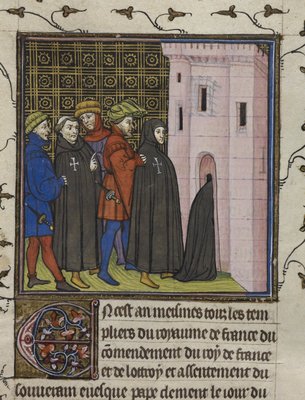 En cest an meismes touz les tem
pliers du royaume de france du
comendement du roy de france
et de lottroy et assentement du
souuerain euesque pape clement le iour du